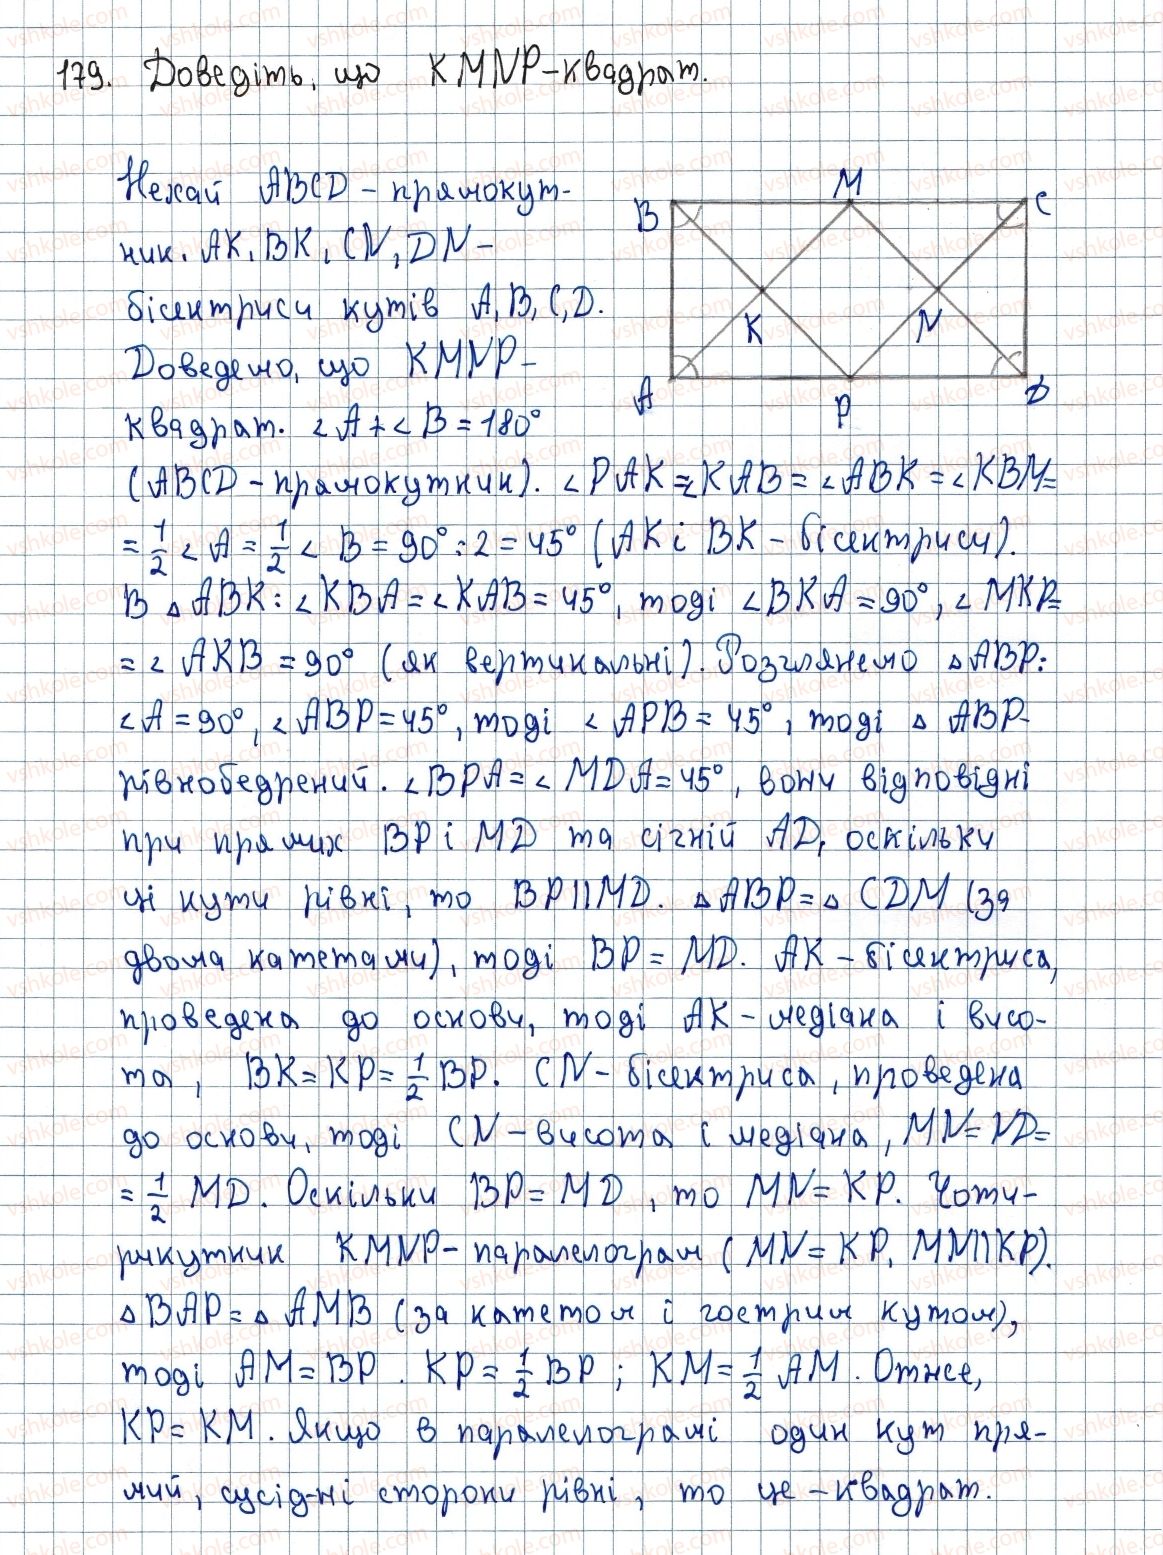 179. Доведіть, що KMNP-квадрат.
Нехай ABCD - прямокут-
ник. AK, BK, CN, DN -
бісектриси кутів A, B, C, D.
Доведемо, що KMNP -
квадрат. ∠A + ∠B = 180°
(ABCD - прямокутник). ∠PAK = ∠KAB = ∠ABK = ∠KBM =
= 1/2 ∠A = 1/2 ∠B = 90° : 2 = 45° (AK і BK - бісектриси).
В △ABK: ∠KBA = ∠KAB = 45°, тоді ∠BKA = 90°, ∠MKP =
= ∠AKB = 90° (як вертикальні). Розглянемо △ABP:
∠A = 90°, ∠ABP = 45°, тоді ∠APB = 45°, тоді △ABP-
рівнобедрений. ∠BPA = ∠MDA = 45°, вони відповідні
при прямих BP і MD та січній AD, оскільки
ці кути рівні, то BP || MD. △ABP = △CDM (за
двома катетами), тоді BP = MD. AK - бісектриса,
проведена до основи, тоді AK - медіана і висо-
та, BK = KP = 1/2 BP. CN - бісектриса, проведена
до основи, тоді CN - висота і медіана, MN = ND =
= 1/2 MD. Оскільки BP = MD, то MN = KP. Чоти-
рикутник KMNP - паралелограм (MN = KP, MN || KP).
△BAP = △AMB (за катетом і гострим кутом),
тоді AM = BP. KP = 1/2 BP; KM = 1/2 AM. Отже,
KP = KM. Якщо в паралелограмі один кут пря-
мий, сусід-ні сторони рівні, то це - квадрат.
B
M
C
K
N
A
P
D
vshkole.com